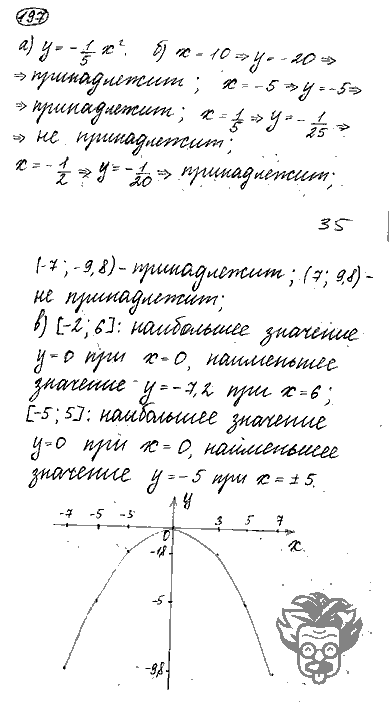 197
а) y = -1/5 x². б) x = 10 ⇒ y = -20 ⇒
⇒ принадлежит; x = -5 ⇒ y = -5 ⇒
⇒ принадлежит; x = 1/5 ⇒ y = -1/25 ⇒
⇒ не принадлежит;
x = -1/2 ⇒ y = -1/20 ⇒ принадлежит;
35
(-7; -9,8) - принадлежит; (7; 9,8) -
не принадлежит;
в) [-2; 6]: наибольшее значение
y = 0 при x = 0, наименьшее
значение y = -7,2 при x = 6;
[-5; 5]: наибольшее значение
y = 0 при x = 0, наименьшее
значение y = -5 при x = ±5.
y
-7 -5 -3 3 5 7
0 x
-1,8
-5
-9,8